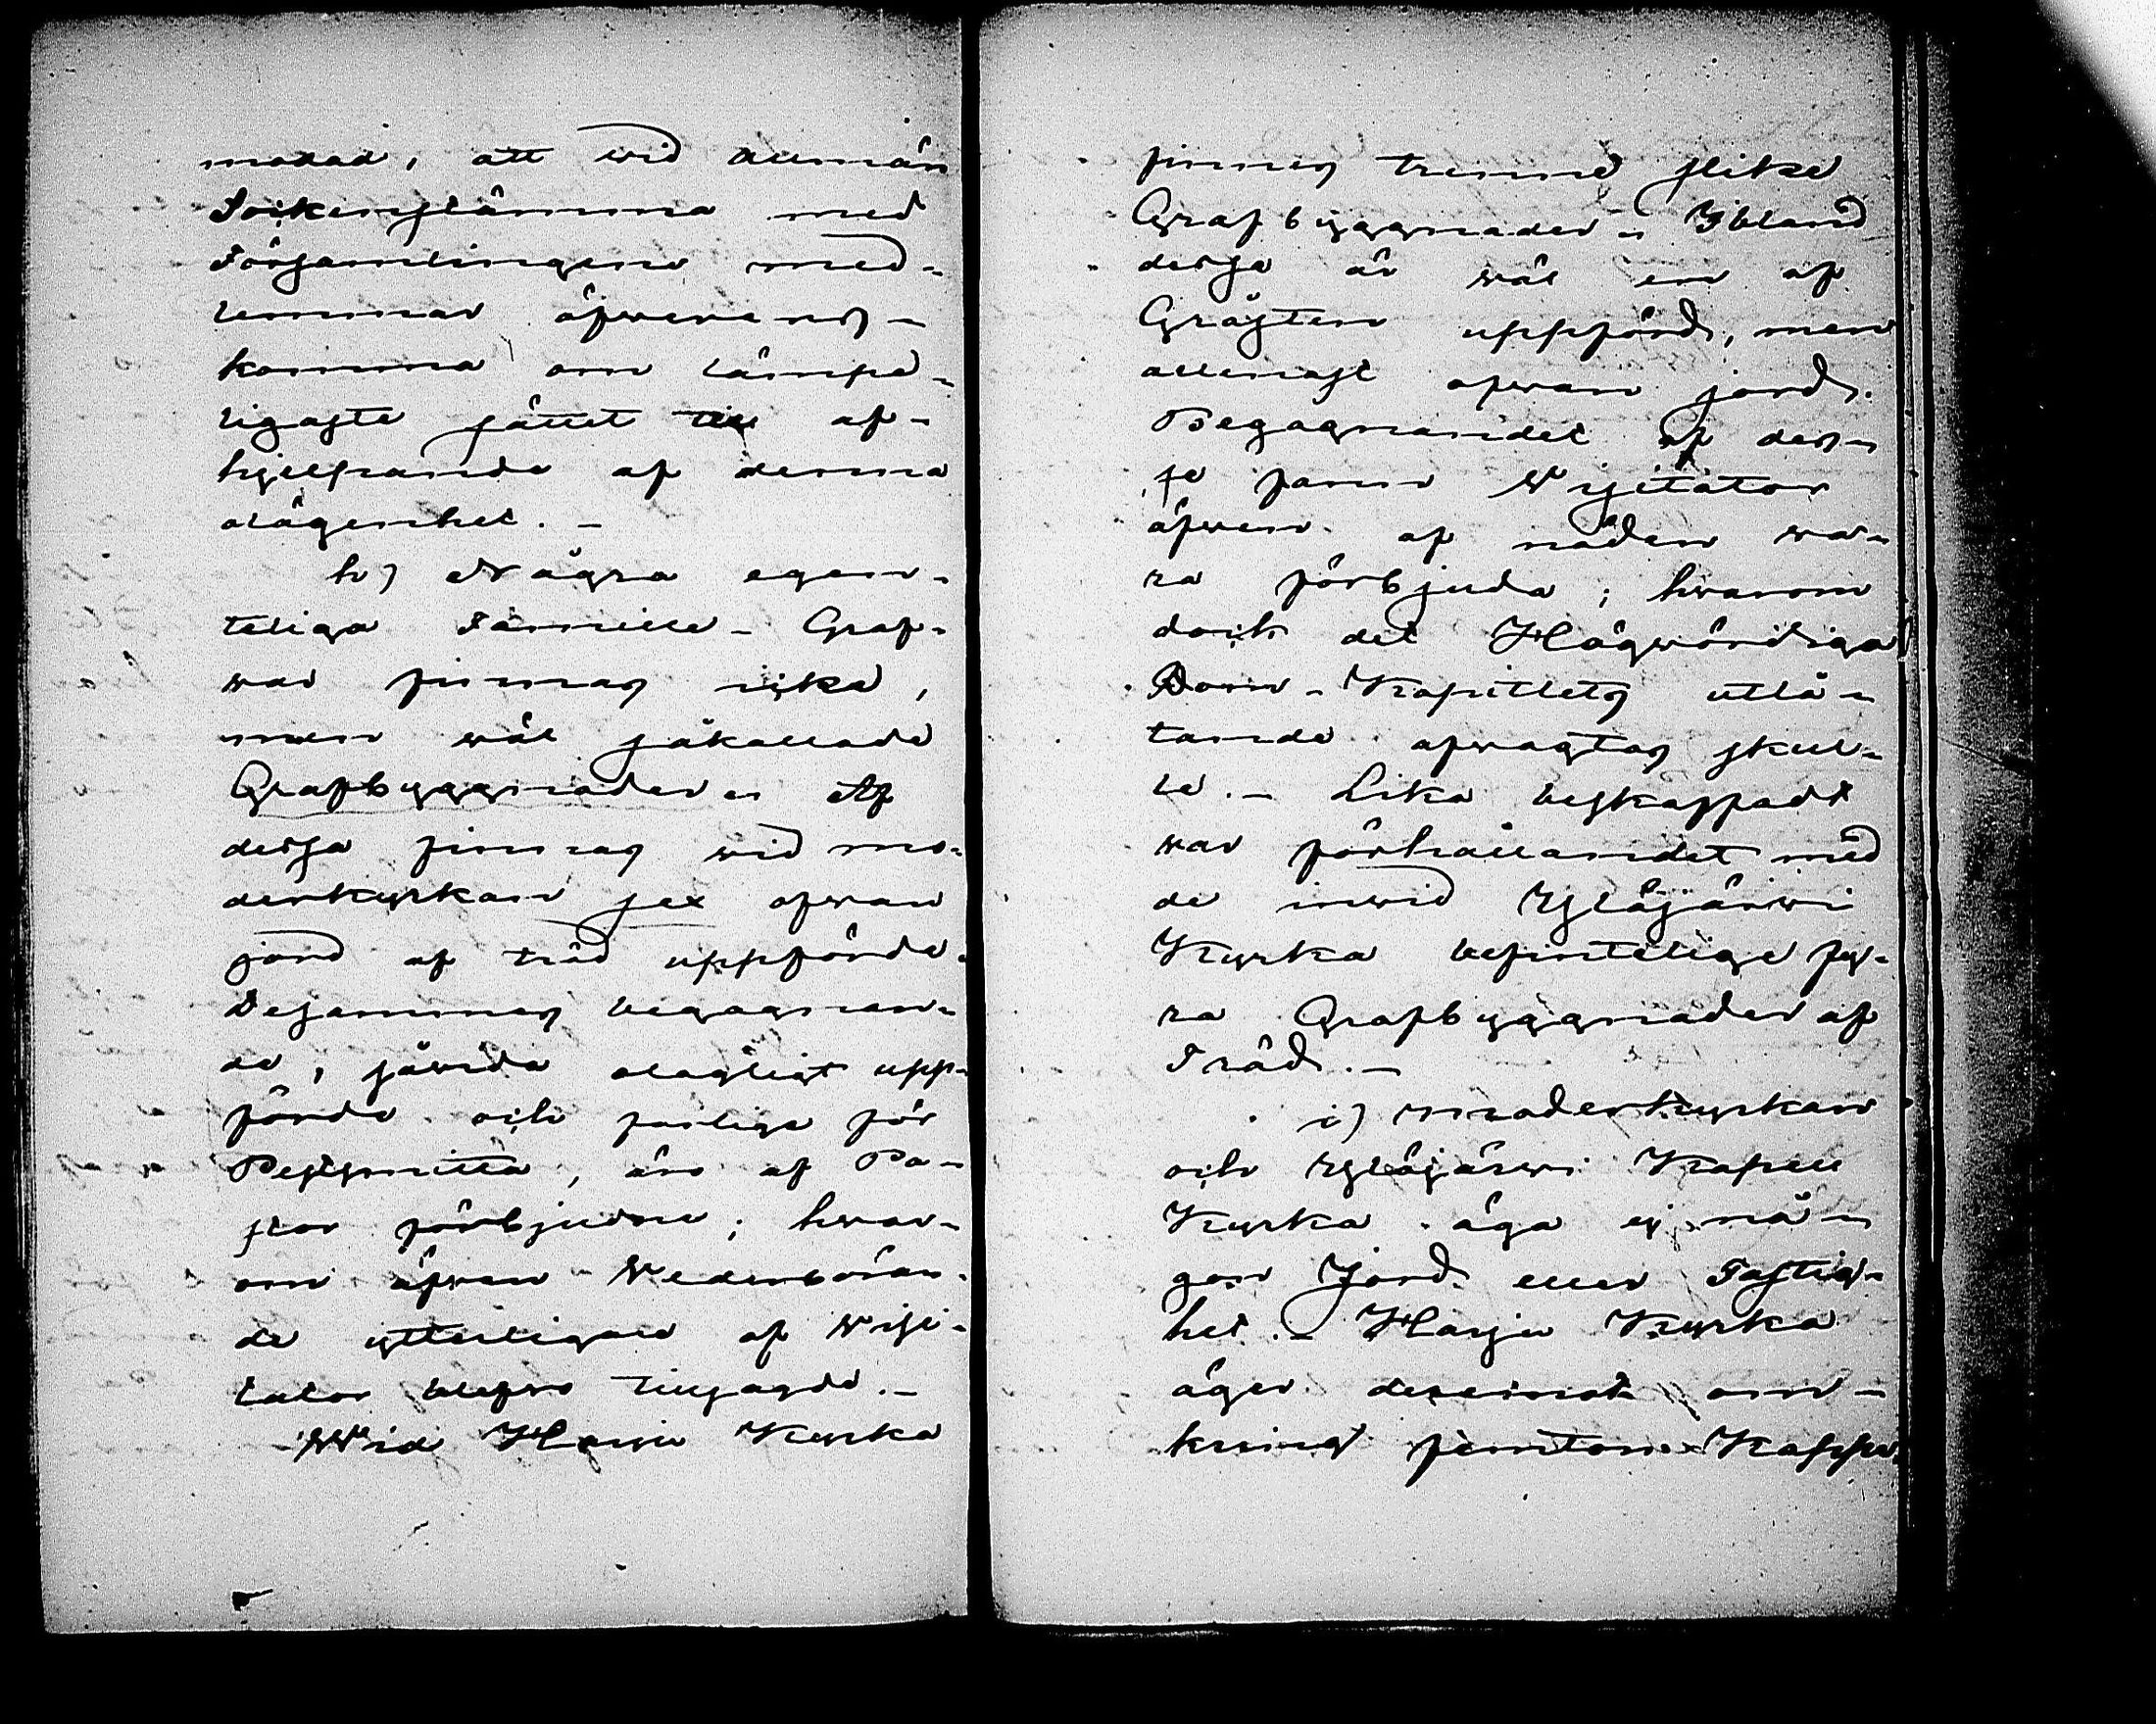 manad, att wid allmän
Sockenstämma med
Församlingens med-
lemmar öfverens-
komma om lämpe-
ligaste sättet till af-
hjelpande af denna
olägenhet. –
h) Några egen-
teliga Familie- Graf-
war finnas icke,
men wäl såkallade
Grafbyggnader. Af
dessa finnas wid mo-
derkyrkan sex ofwan
jord af träd uppförde.
Desammas begagnan-
de, såwida olagligt upp-
förde och farlige för
Pestsmitta, äro af Pa-
stor förbjudne; hwar-
om äfwen Wederböran-
de ytterligare af Wisi-
tator blefwo tillsagde. –
Wid Harju Kyrka
finnes trenne slike
Grafbyggnader. Ibland
dessa är wäl en af
Gråsten uppförd, men
allenast ofwan jord.
Begagnandet af des-
se fann Wisitator
äfwen af nöden wa-
ra förbjuda; hwarom
dock det Högwördiga
Dom-Kapitlets utlå-
tande afwagtas skul-
le. – Lika beskaffadt
war förhållandet med
de inwid Ylöjärwi
Kyrka befintelige fy-
ra Grafbyggnader af
Träd. –
i) Moderkyrkan
och Ylöjärwi Kapell
Kyrka äga ej nå-
gon Jord eller Fastig-
het. – Harju Kyrka
äger deremot om-
kring femton Kappe